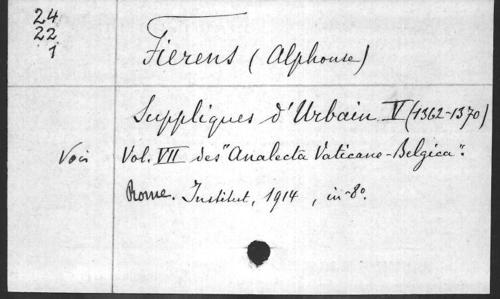 24
22
1
Fierens (Alphonse)
Suppliques d'Urbain V (1362-1370)
Voir Vol. VII des "Analecta Vaticano-Belgica".
Rome. Institut, 1914, in-8o.